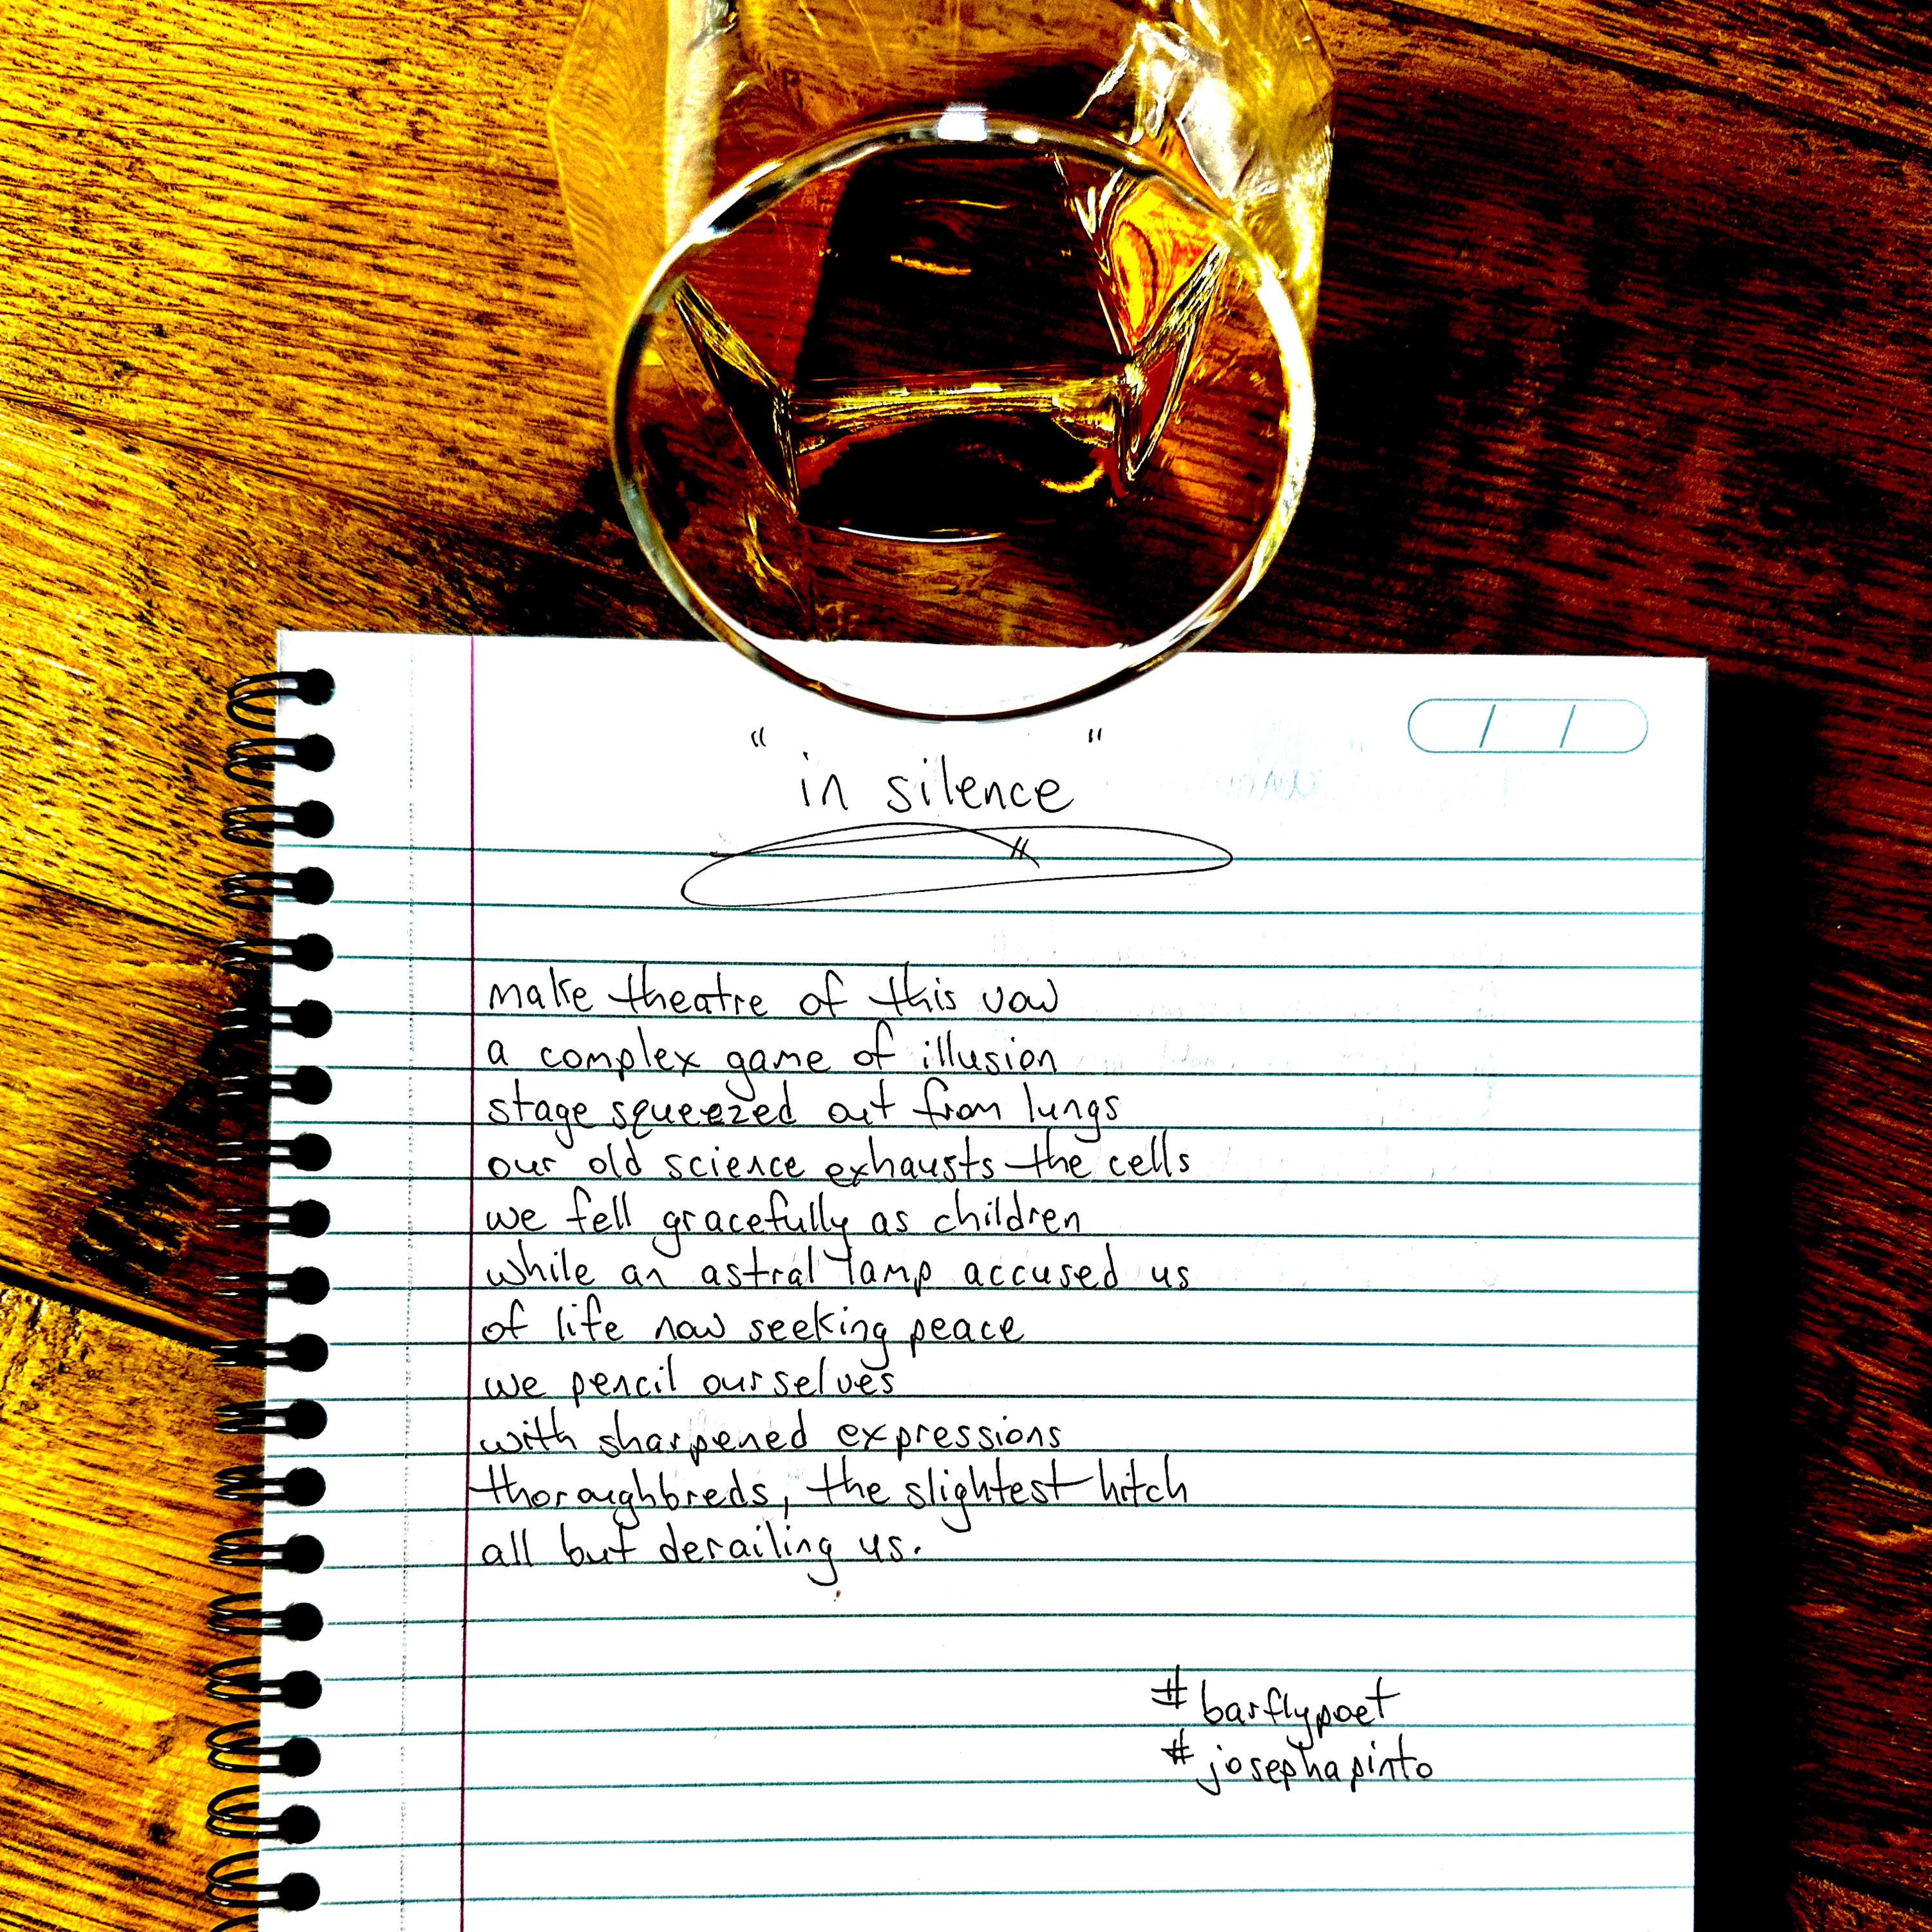 "in silence"
make theatre of this vow
a complex game of illusion
stage squeezed out from lungs
our old science exhausts the cells
we fell gracefully as children
while an astral lamp accused us
of life now seeking peace
we pencil ourselves
with sharpened expressions
thoroughbreds, the slightest hitch
all but derailing us.
#barflypoet
#josephapinto